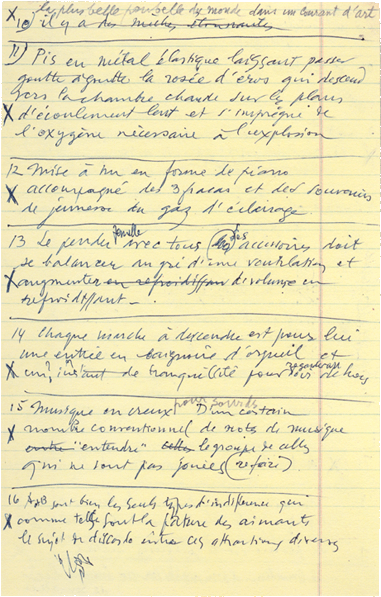 la plus belle poubelle du monde dans un courant d'art
X 10) il y a des miches étonnantes
11) Pis en métal élastique laissant passer
goutte à goutte la rosée d'éros qui descend
vers la chambre chaude sur les plans
X d'écoulement lent et s'imprègne de
l'oxygène nécessaire à l'explosion
12 Mise à nu en forme de piano
X accompagné des 3 fracas et des souvenirs
de jeunesse du gaz d'éclairage
13 Le pendu femelle avec tous ses accessoires doit
se balancer au gré d'une ventilation et
X augmenter en refroidissant de volume en
refroidissant
14 Chaque marche à descendre est pour lui
une entrée en baignoire d'orgueil et
X un instant de tranquillité pour nos de
15 Musique en creux pour sourds D'un certain
X nombre conventionnel de notes de musique
"entendre" le groupe de celles
qui ne sont pas jouées (refaire)
16 A et B sont bien les seuls types d'indifférence qui
X comme telle sont la pâture des aimants
le sujet de discorde entre ces attractions diverses